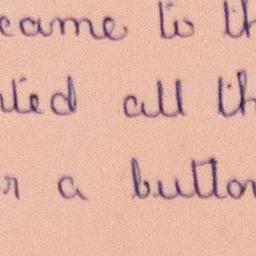 came to th
ted all th
r a button